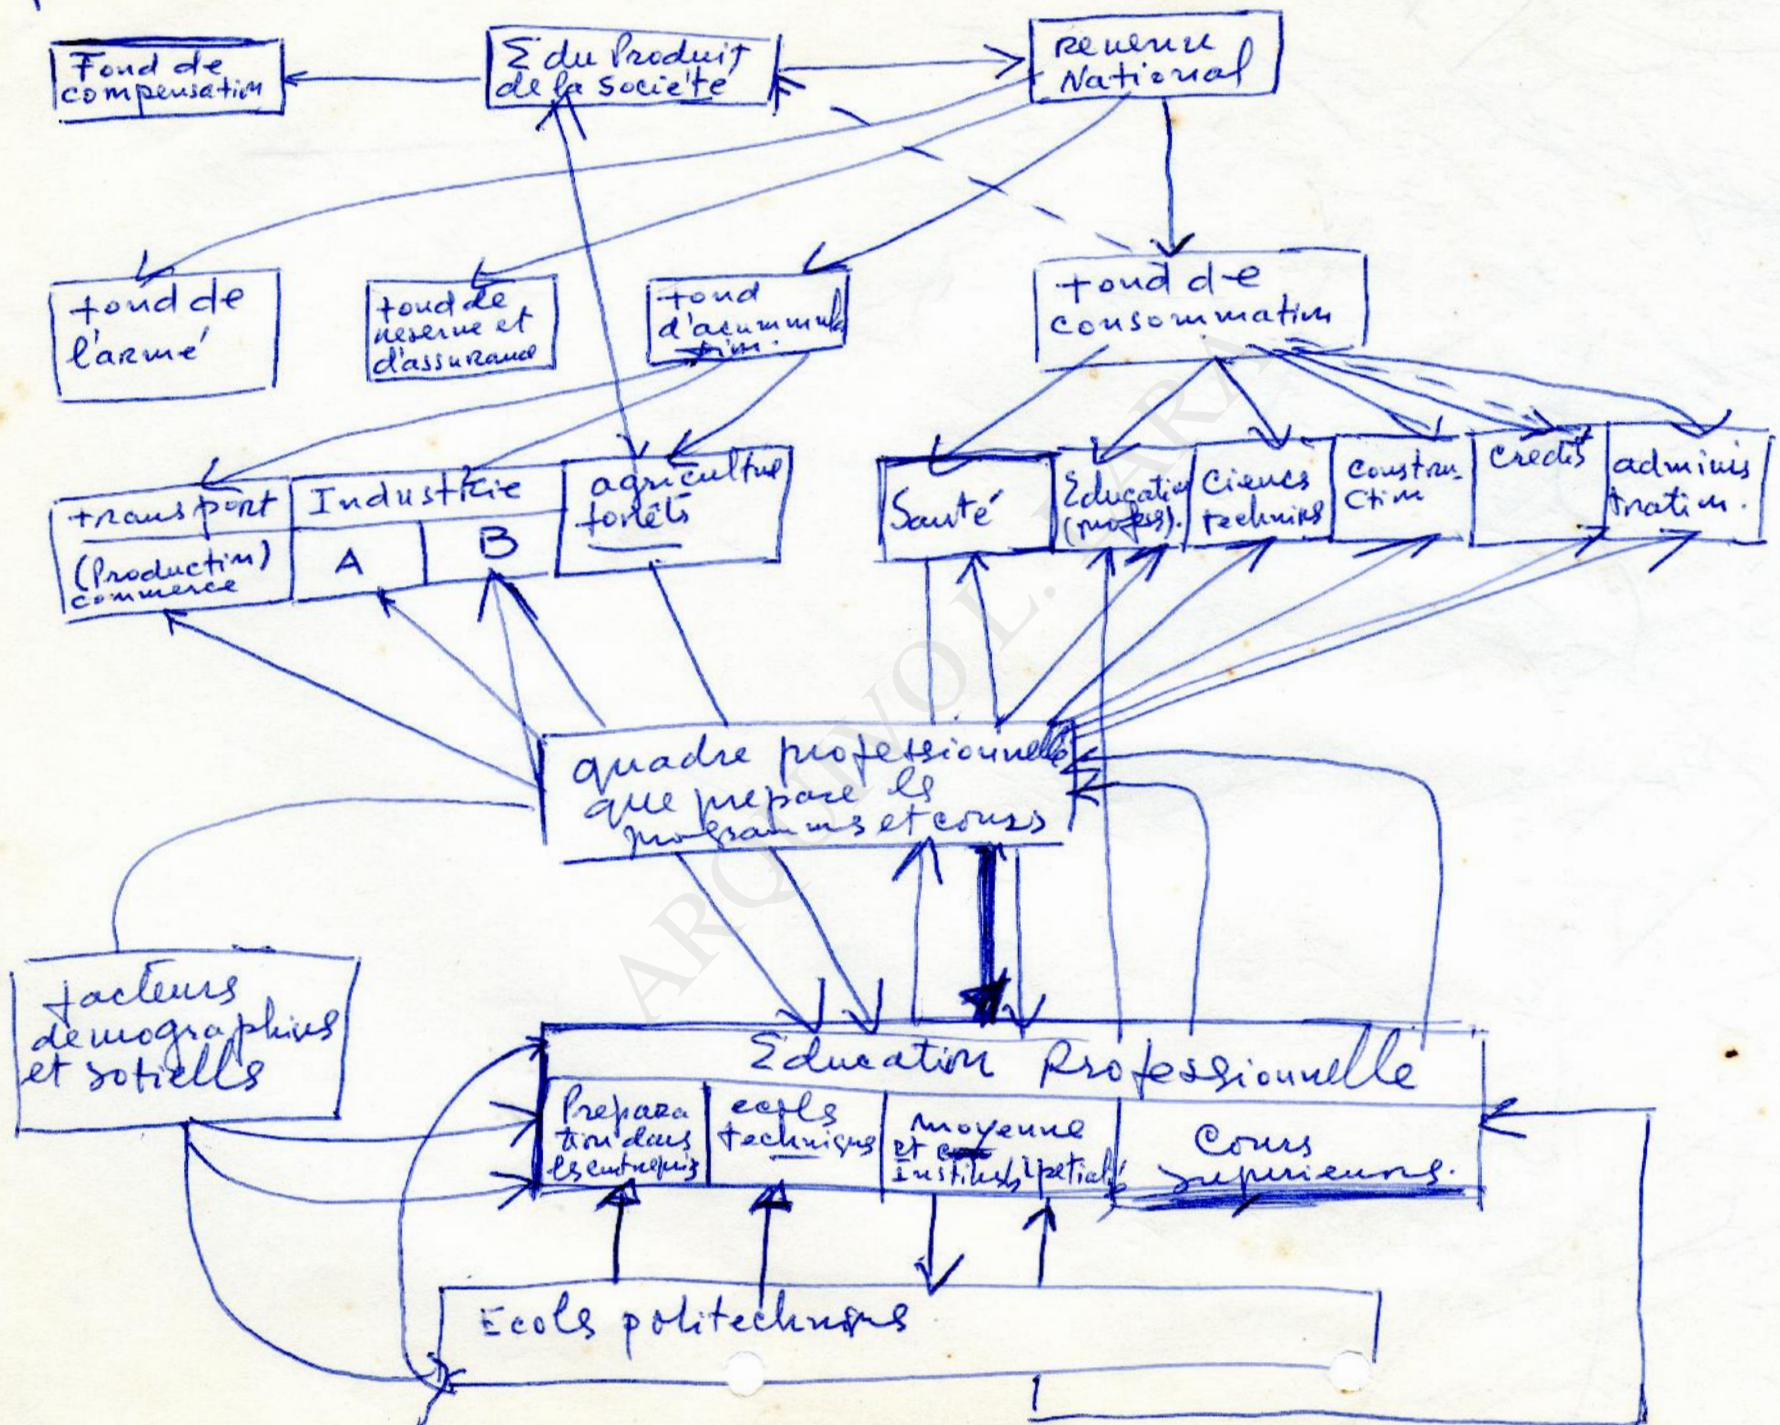 Fond de
compensation
Σ du Produit
de la Société
revenu
National
fond de
l'armé
fond de
reserve et
d'assurance
fond
d'acummula
tion.
fond de
consommation
transport
(Production)
commerce
Industrie
A
B
agriculture
forêts
Santé
Education
(profess).
Ciencs
techniqs
constru-
ction
credit
adminis
tration.
quadre professionnells
que prepare ls
programms et cours
facteurs
demographiqs
et sotiells
Education Professionnelle
Prepara
tion dans
les entrepris
ecols
techniques
moyenne
et
Instituts spetials
Cours
superieurs.
Ecols politechniqs
ARQUIVO L. LARA